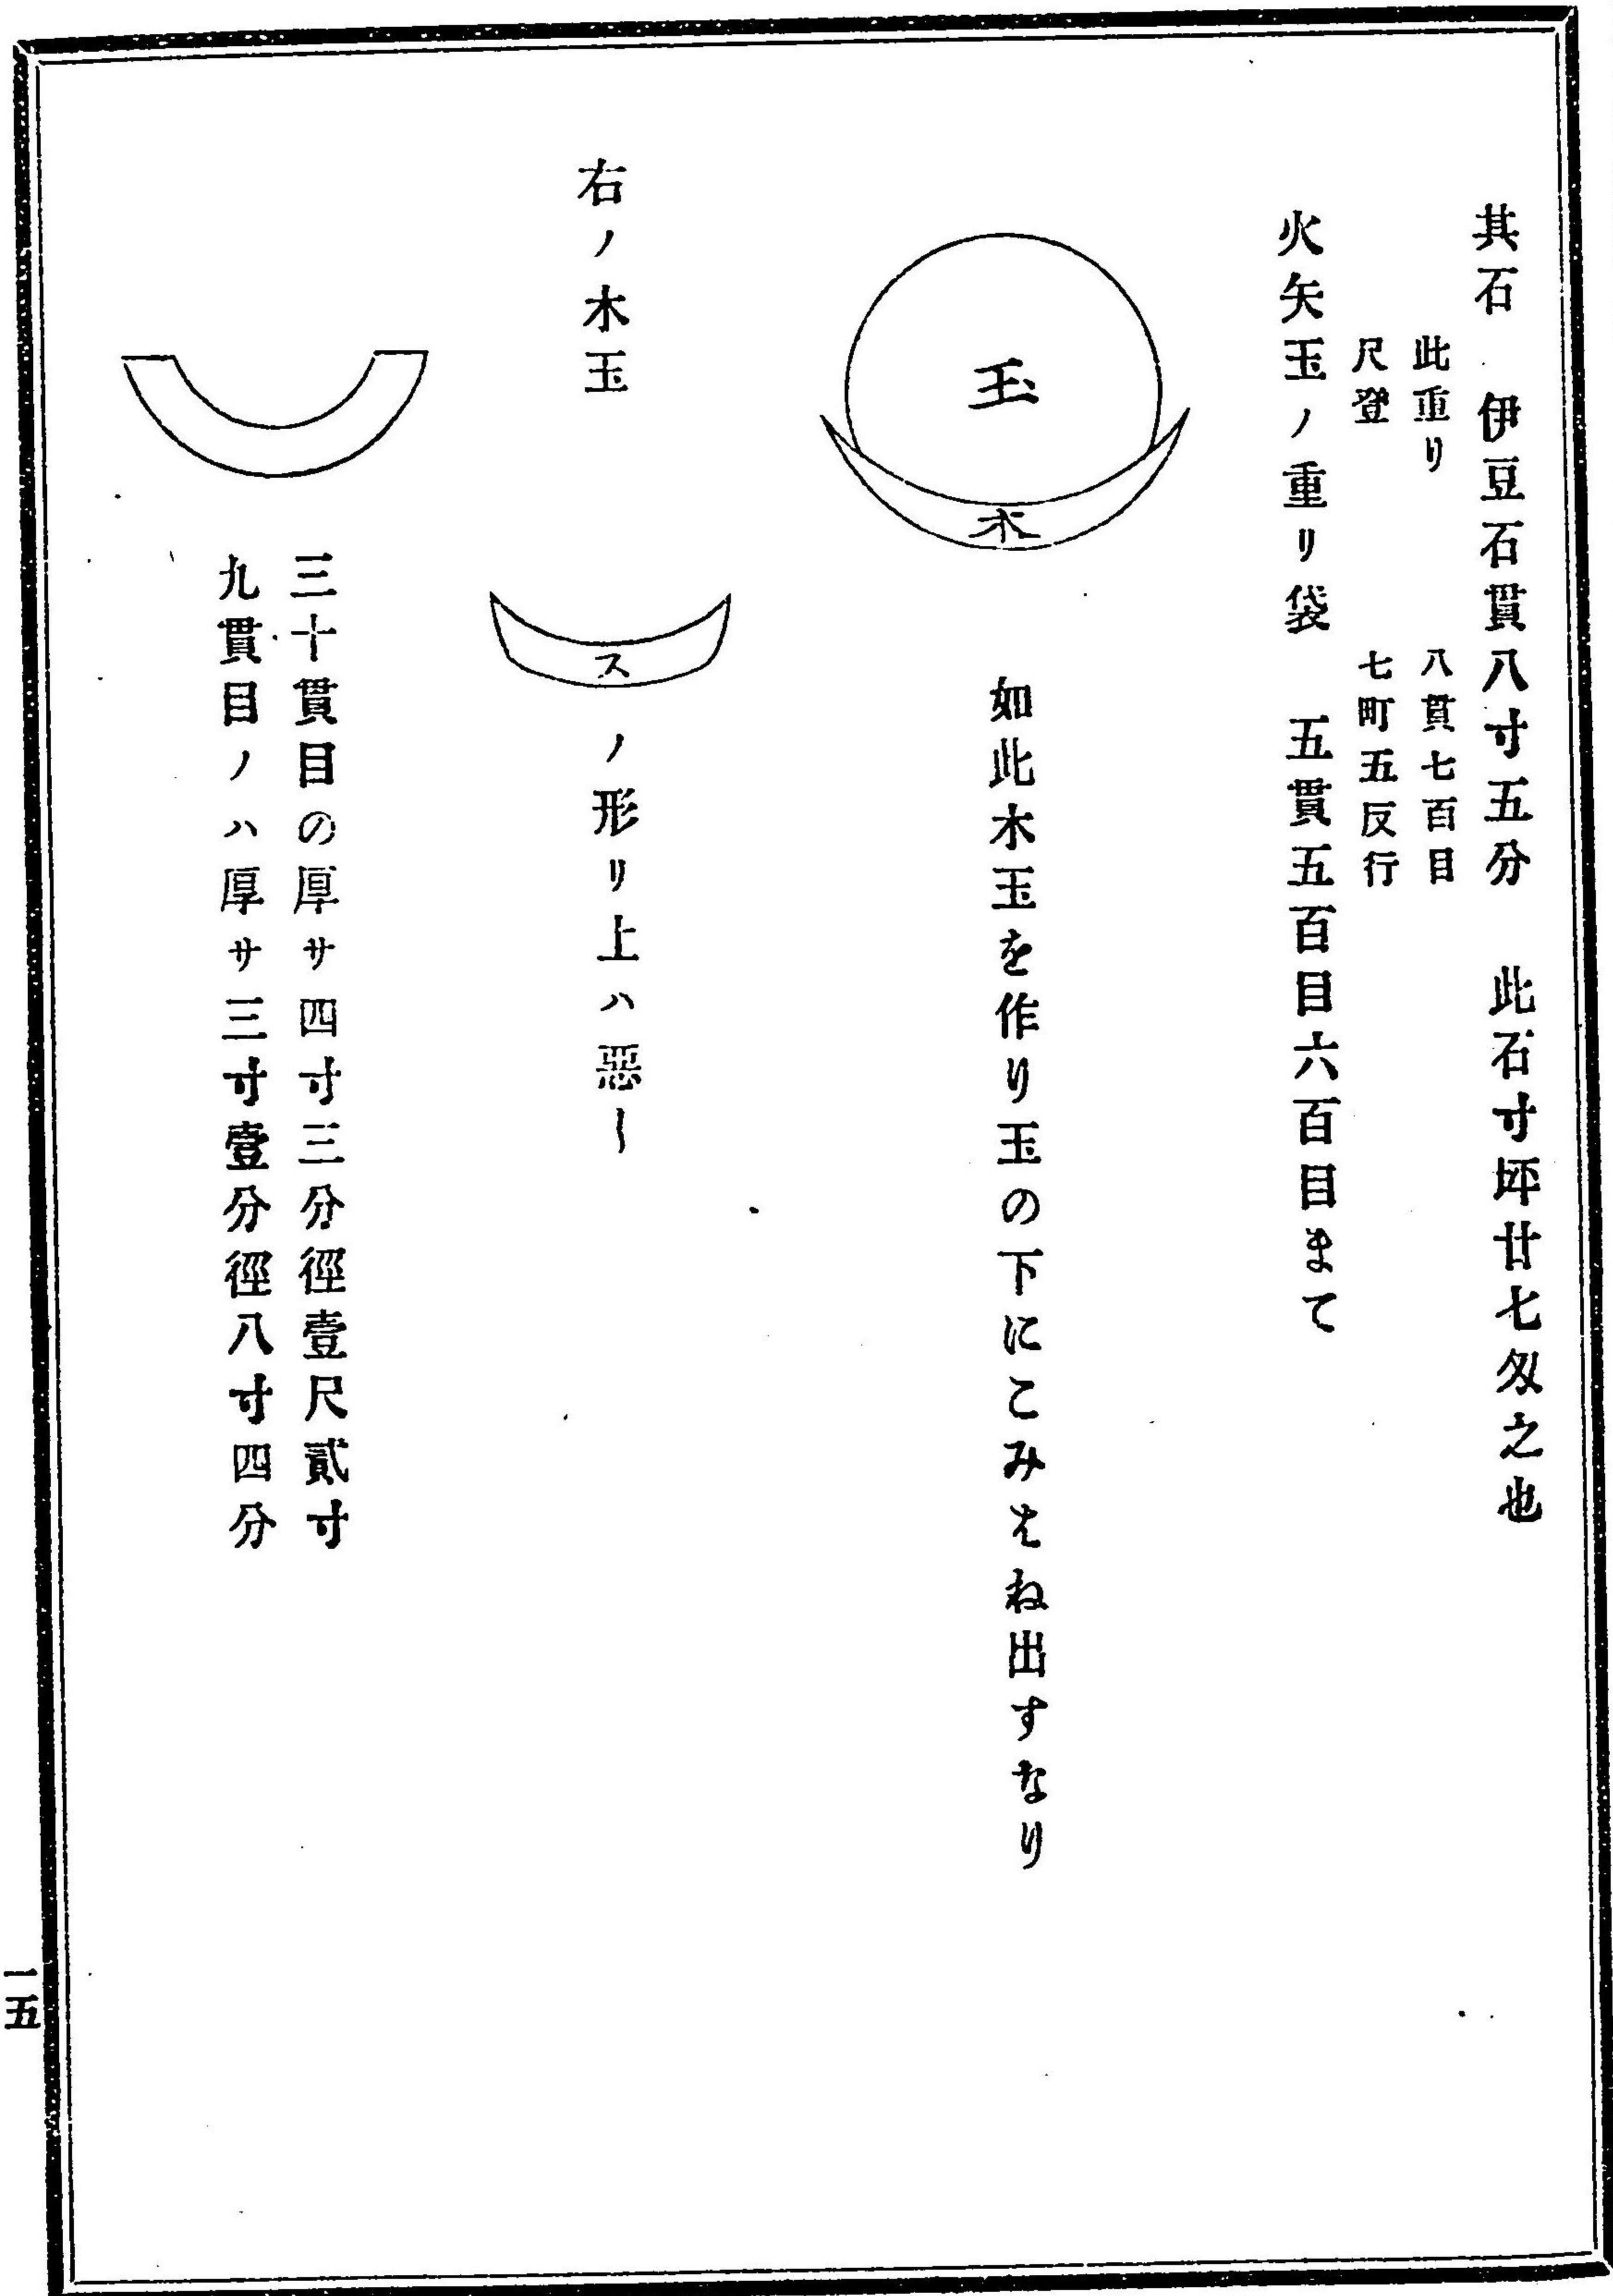 其石 伊豆石貫八寸五分 此石寸坪廿七匁之也
此重リ 八貫七百目
尺登 七町五反行
火矢玉ノ重リ袋 五貫五百目六百目まて
玉
木
如此木玉を作り玉の下にこみはね出すなり
右ノ木玉
ス
ノ形リ上ハ惡し
三十貫目の厚サ四寸三分徑壹尺貳寸
九貫目ノハ厚サ三寸壹分徑八寸四分
一五